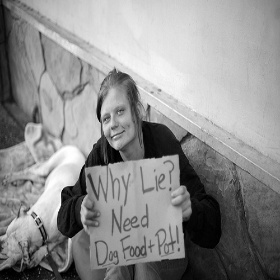 Why Lie?
Need
Dog Food + Pot!